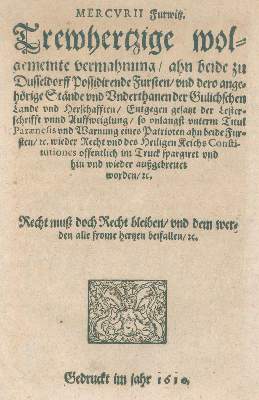 MERCVRII Furwitz.
Trewhertzige wol-
gemeinte vermahnung / ahn beide zu
Dusseldorff Possidirende Fursten / vnd dero ange-
hörige Stände vnd Vnderthanen der Gulichschen
Lande vnd Herschafften / Entgegen gesatzt der Lester-
schrifft vnnd Auffwiglung / so vnlangst vnterm Titul
Parænesis vnd Warnung eines Patrioten ahn beide Fur-
sten / ec. wieder Recht vnd des Heiligen Reichs Consti-
tutiones offentlich im Truck spargiret vnd
hin vnd wieder außgebreitet
worden / ec.
Recht muß doch Recht bleiben / vnd dem wer-
den alle frome hertzen beifallen / ec.
Gedruckt im jahr 1610.